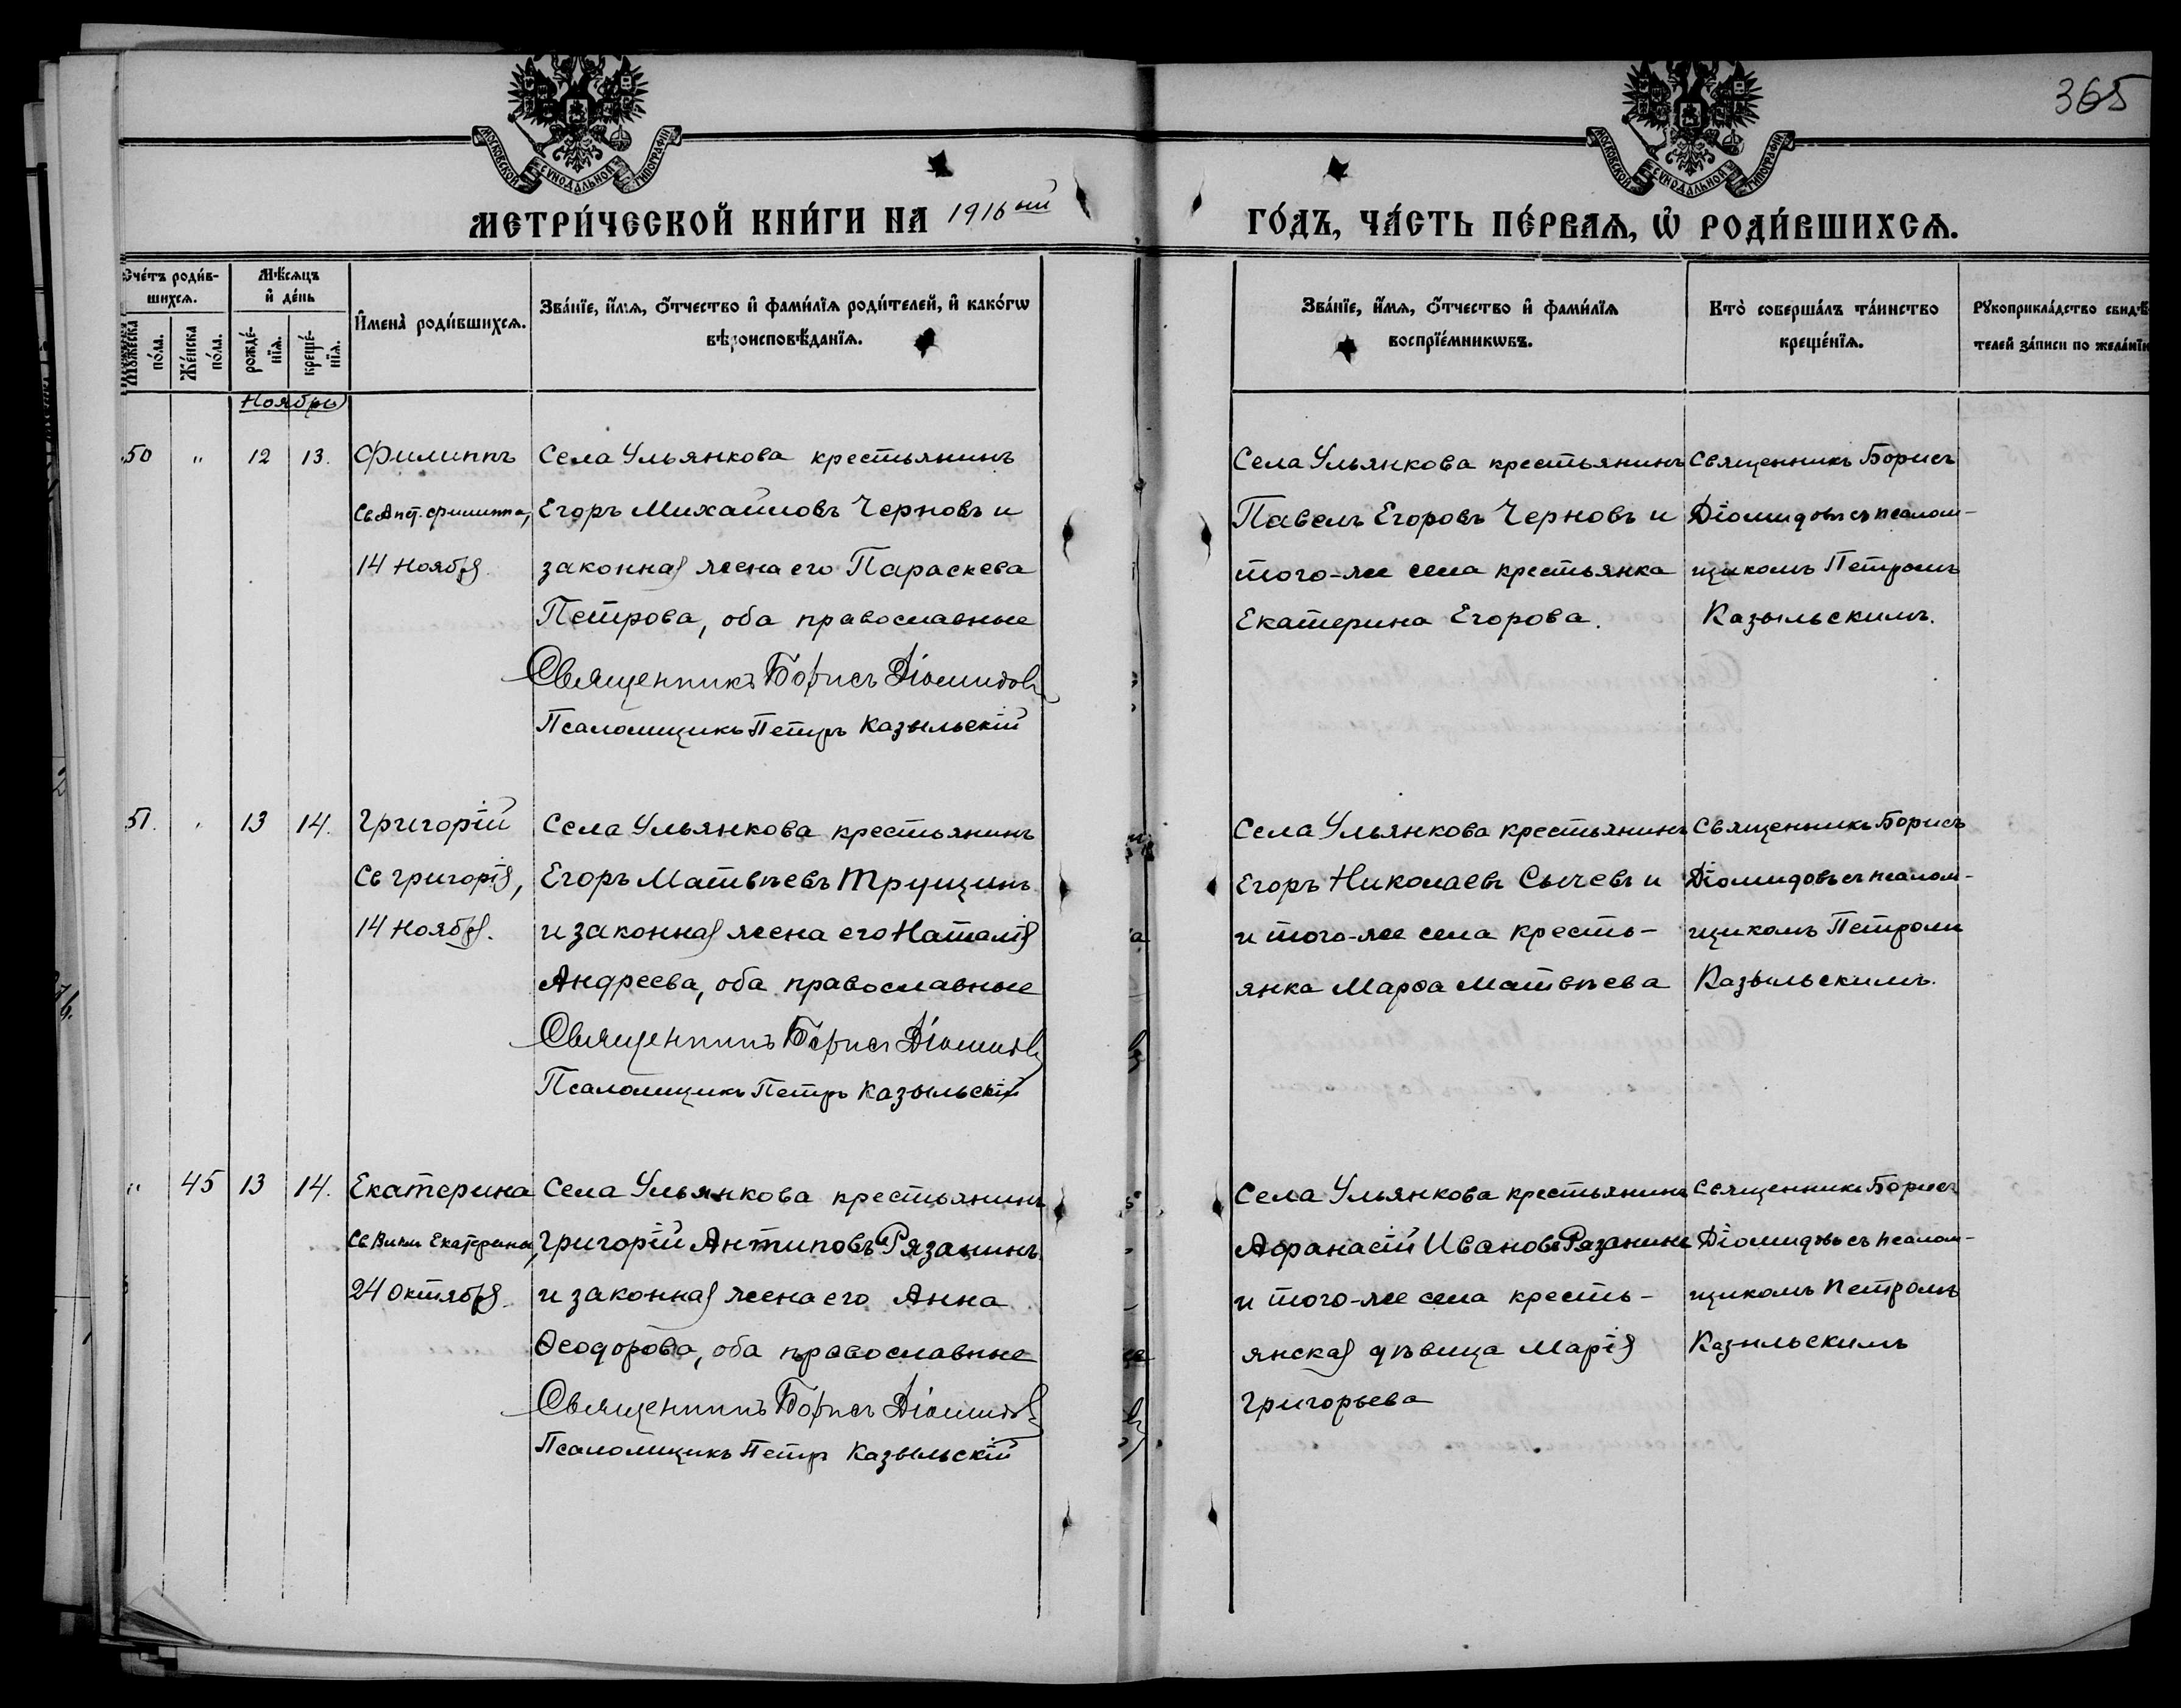 365
МОСКОВСКОЙ СѴНОДАЛЬНОЙ ТИПОГРАФІИ
МОСКОВСКОЙ СѴНОДАЛЬНОЙ ТИПОГРАФІИ
МЕТРИ́ЧЕСКОЙ КНИ́ГИ НА 1916 ый ГО́ДЪ, ЧА́СТЬ ПЕ́РВАѦ, Ѡ҆ РОДИ́ВШИХСѦ.
Сче́тъ роди́в-
шихсѧ.
Мꙋ́жеска
по́ла.
Же́нска
по́ла.
Мѣ́сѧцъ
и҆ де́нь
рожде́-
нїѧ.
креще́-
нїѧ.
И҆мена̀ роди́вшихсѧ.
Зва́нїе, и҆́мѧ, ѻ҆́тчество и҆ фами́лїѧ роди́телей, и҆ како́гѡ
вѣроисповѣ́данїѧ.
Зва́нїе, и҆́мѧ, ѻ҆́тчество и҆ фами́лїѧ
воспрїе́мникѡвъ.
Кто̀ соверша́лъ та́инство
креще́нїѧ.
Рꙋкоприкла́дство свидѣ́-
телей за́писи по жела́нїю
Ноябрь
50 " 12 13.
Филиппъ
Св Апст. Филиппа,
14 Ноября
Села Ульянкова крестьянинъ
Егоръ Михаиловъ Черновъ и
законная жена его Параскева
Петрова, оба православные
Священникъ Борисъ Діомидовъ
Псаломщикъ Петръ Казыльскій
Села Ульянкова крестьянинъ
Павелъ Егоровъ Черновъ и
того-же села крестьянка
Екатерина Егорова.
Священникъ Борисъ
Діомидовъ съ псалом-
щикомъ Петромъ
Казыльскимъ.
51. " 13 14.
Григорій
Св Григорія,
14 Ноября.
Села Ульянкова крестьянинъ
Егоръ Матвѣевъ Трущинъ
и законная жена его Наталія
Андреева, оба православные
Священникъ Борисъ Діомидовъ
Псаломщикъ Петръ Казыльскій
Села Ульянкова крестьянинъ
Егоръ Николаевъ Сычевъ и
и того-же села кресть-
янка Марѳа Матвѣева
Священникъ Борисъ
Діомидовъ съ псалом-
щикомъ Петромъ
Казыльскимъ.
" 45 13 14.
Екатерина
Св Вмц Екатерина,
24 Октября
Села Ульянкова крестьянинъ
Григорій Антиповъ Рязанинъ
и законная жена его Анна
Ѳеодорова, оба православные
Священникъ Борисъ Діомидовъ
Псаломщикъ Петръ Казыльскій
Села Ульянкова крестьянинъ
Афанасій Ивановъ Рязанинъ
и того-же села кресть-
янская дѣвица Марія
Григорьева
Священникъ Борисъ
Діомидовъ съ псалом-
щикомъ Петромъ
Казыльскимъ